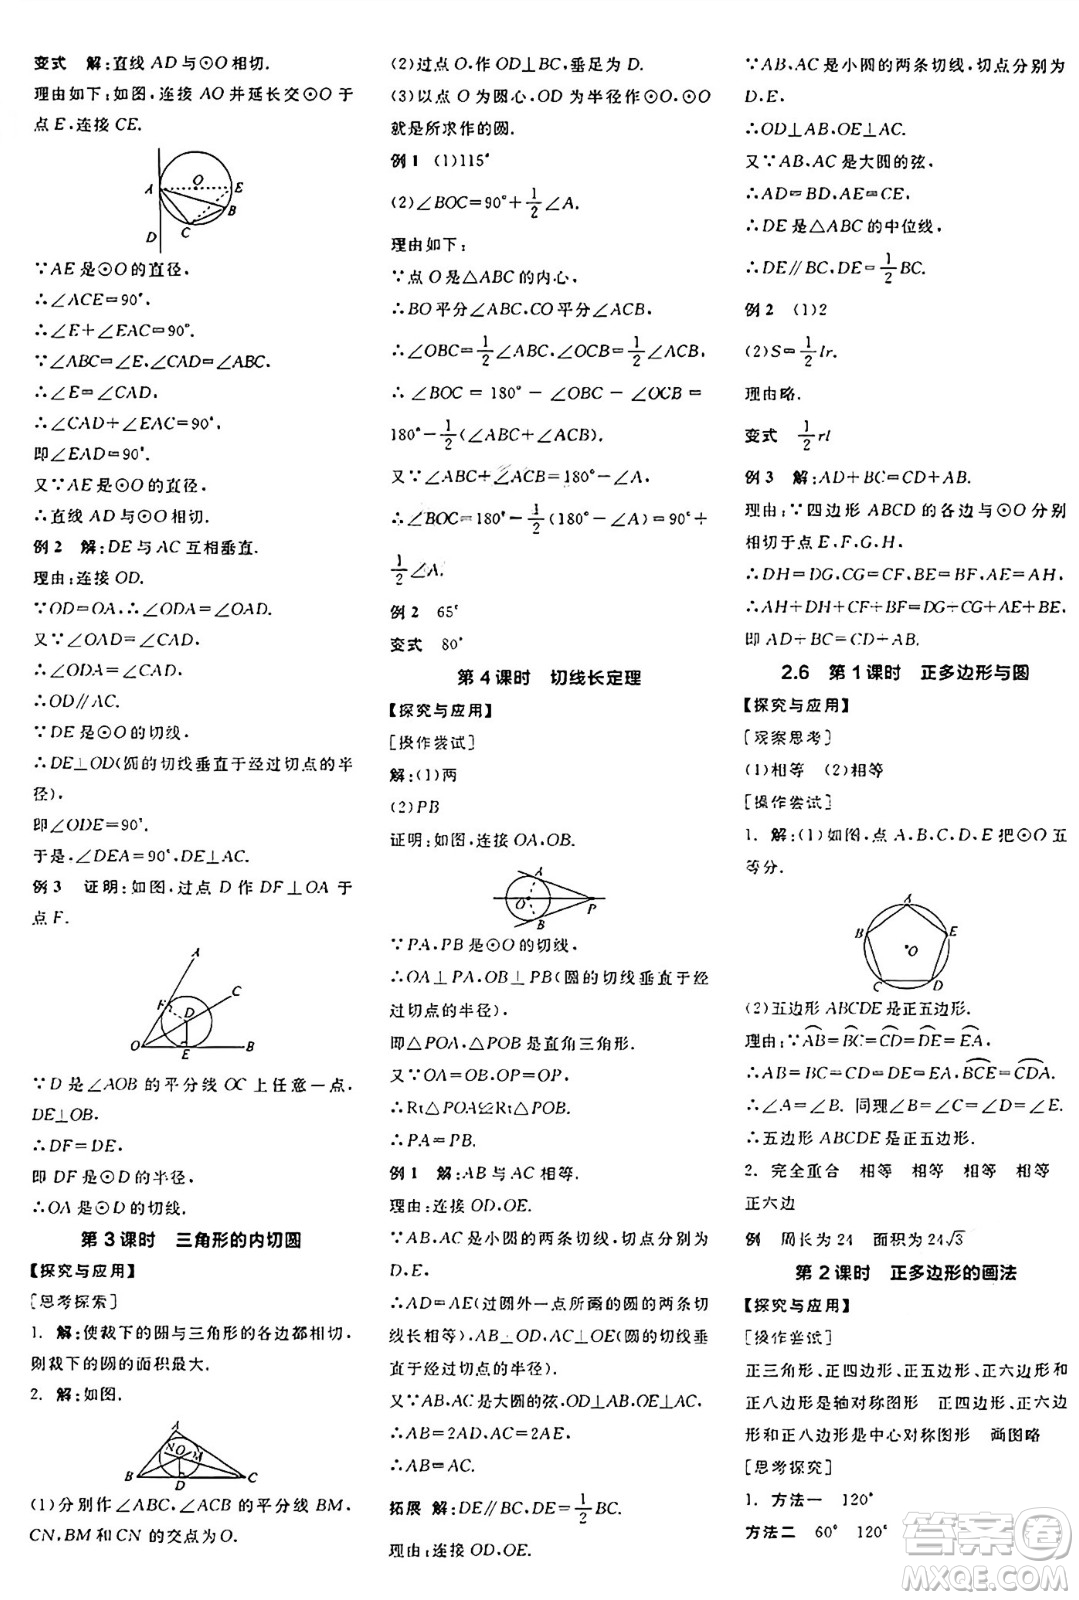 变式 解:直线 AD 与⊙O 相切.
理由如下:如图,连接 AO 并延长交⊙O 于
点 E,连接 CE.
A
O
E
B
C
D
∵AE 是⊙O 的直径,
∴∠ACE=90°,
∴∠E+∠EAC=90°.
∵∠ABC=∠E,∠ABC=∠CAD,
∴∠E=∠CAD,
∴∠CAD+∠EAC=90°,
即∠EAD=90°.
又∵AE 是⊙O 的直径,
∴直线 AD 与⊙O 相切.
例 2 解:DE 与 AC 互相垂直.
理由:连接 OD.
∵OD=OA,∴∠ODA=∠OAD.
又∵∠OAD=∠CAD,
∴∠ODA=∠CAD,
∴OD∥AC.
∵DE 是⊙O 的切线,
∴DE⊥OD(圆的切线垂直于经过切点的半
径),
即∠ODE=90°,
于是,∠DEA=90°,DE⊥AC.
例 3 证明:如图,过点 D 作 DF⊥OA 于
点 F.
A
C
F
D
O
E
B
∵D 是∠AOB 的平分线 OC 上任意一点,
DE⊥OB,
∴DF=DE,
即 DF 是⊙D 的半径,
∴OA 是⊙D 的切线.
第 3 课时 三角形的内切圆
【探究与应用】
[思考探索]
1. 解:使裁下的圆与三角形的各边都相切,
则裁下的圆的面积最大.
2. 解:如图.
A
N
O
M
B
D
C
(1)分别作∠ABC,∠ACB 的平分线 BM,
CN,BM 和 CN 的交点为 O.
(2)过点 O,作 OD⊥BC,垂足为 D.
(3)以点 O 为圆心,OD 为半径作⊙O,⊙O
就是所求作的圆.
例 1 (1)115°
(2)∠BOC=90°+1/2∠A.
理由如下:
∵点 O 是△ABC 的内心,
∴BO 平分∠ABC,CO 平分∠ACB,
∴∠OBC=1/2∠ABC,∠OCB=1/2∠ACB,
∴∠BOC = 180° - ∠OBC - ∠OCB =
180°-1/2(∠ABC+∠ACB).
又∵∠ABC+∠ACB=180°-∠A,
∴∠BOC=180°-1/2(180°-∠A)=90°+
1/2∠A.
例 2 65°
变式 80°
第 4 课时 切线长定理
【探究与应用】
[操作尝试]
解:(1)两
(2)PB
证明:如图,连接 OA,OB.
A
O
P
B
∵PA,PB 是⊙O 的切线,
∴OA⊥PA,OB⊥PB(圆的切线垂直于经
过切点的半径),
即△POA,△POB 是直角三角形.
又∵OA=OB,OP=OP,
∴Rt△POA≌Rt△POB,
∴PA=PB.
例 1 解:AB 与 AC 相等.
理由:连接 OD,OE.
∵AB,AC 是小圆的两条切线,切点分别为
D,E,
∴AD=AE(过圆外一点所画的圆的两条切
线长相等),AB⊥OD,AC⊥OE(圆的切线垂
直于经过切点的半径).
又∵AB,AC 是大圆的弦,OD⊥AB,OE⊥AC,
∴AB=2AD,AC=2AE,
∴AB=AC.
拓展 解:DE∥BC,DE=1/2BC.
理由:连接 OD,OE.
∵AB,AC 是小圆的两条切线,切点分别为
D,E,
∴OD⊥AB,OE⊥AC.
又∵AB,AC 是大圆的弦,
∴AD=BD,AE=CE,
∴DE 是△ABC 的中位线,
∴DE∥BC,DE=1/2BC.
例 2 (1)2
(2)S=1/2lr.
理由略.
变式 1/2rl
例 3 解:AD+BC=CD+AB.
理由:∵四边形 ABCD 的各边与⊙O 分别
相切于点 E,F,G,H,
∴DH=DG,CG=CF,BF=BE,AE=AH,
∴AH+DH+CF+BF=DG+CG+AE+BE,
即 AD+BC=CD+AB.
2.6 第 1 课时 正多边形与圆
【探究与应用】
[观察思考]
(1)相等 (2)相等
[操作尝试]
1. 解:(1)如图,点 A,B,C,D,E 把⊙O 五
等分.
A
B
E
O
C
D
(2)五边形 ABCDE 是正五边形.
理由:∵AB⌒=BC⌒=CD⌒=DE⌒=EA⌒,
∴AB=BC=CD=DE=EA,BCE⌒=CDA⌒,
∴∠A=∠B. 同理∠B=∠C=∠D=∠E,
∴五边形 ABCDE 是正五边形.
2. 完全重合 相等 相等 相等 相等
正六边
例 周长为 24 面积为 24√3
第 2 课时 正多边形的画法
【探究与应用】
[操作尝试]
正三角形、正四边形、正五边形、正六边形和
正八边形是轴对称图形 正四边形、正六边
形和正八边形是中心对称图形 画图略
[思考探究]
1. 方法一 120°
方法二 60° 120°
答案圈
MXQE.COM